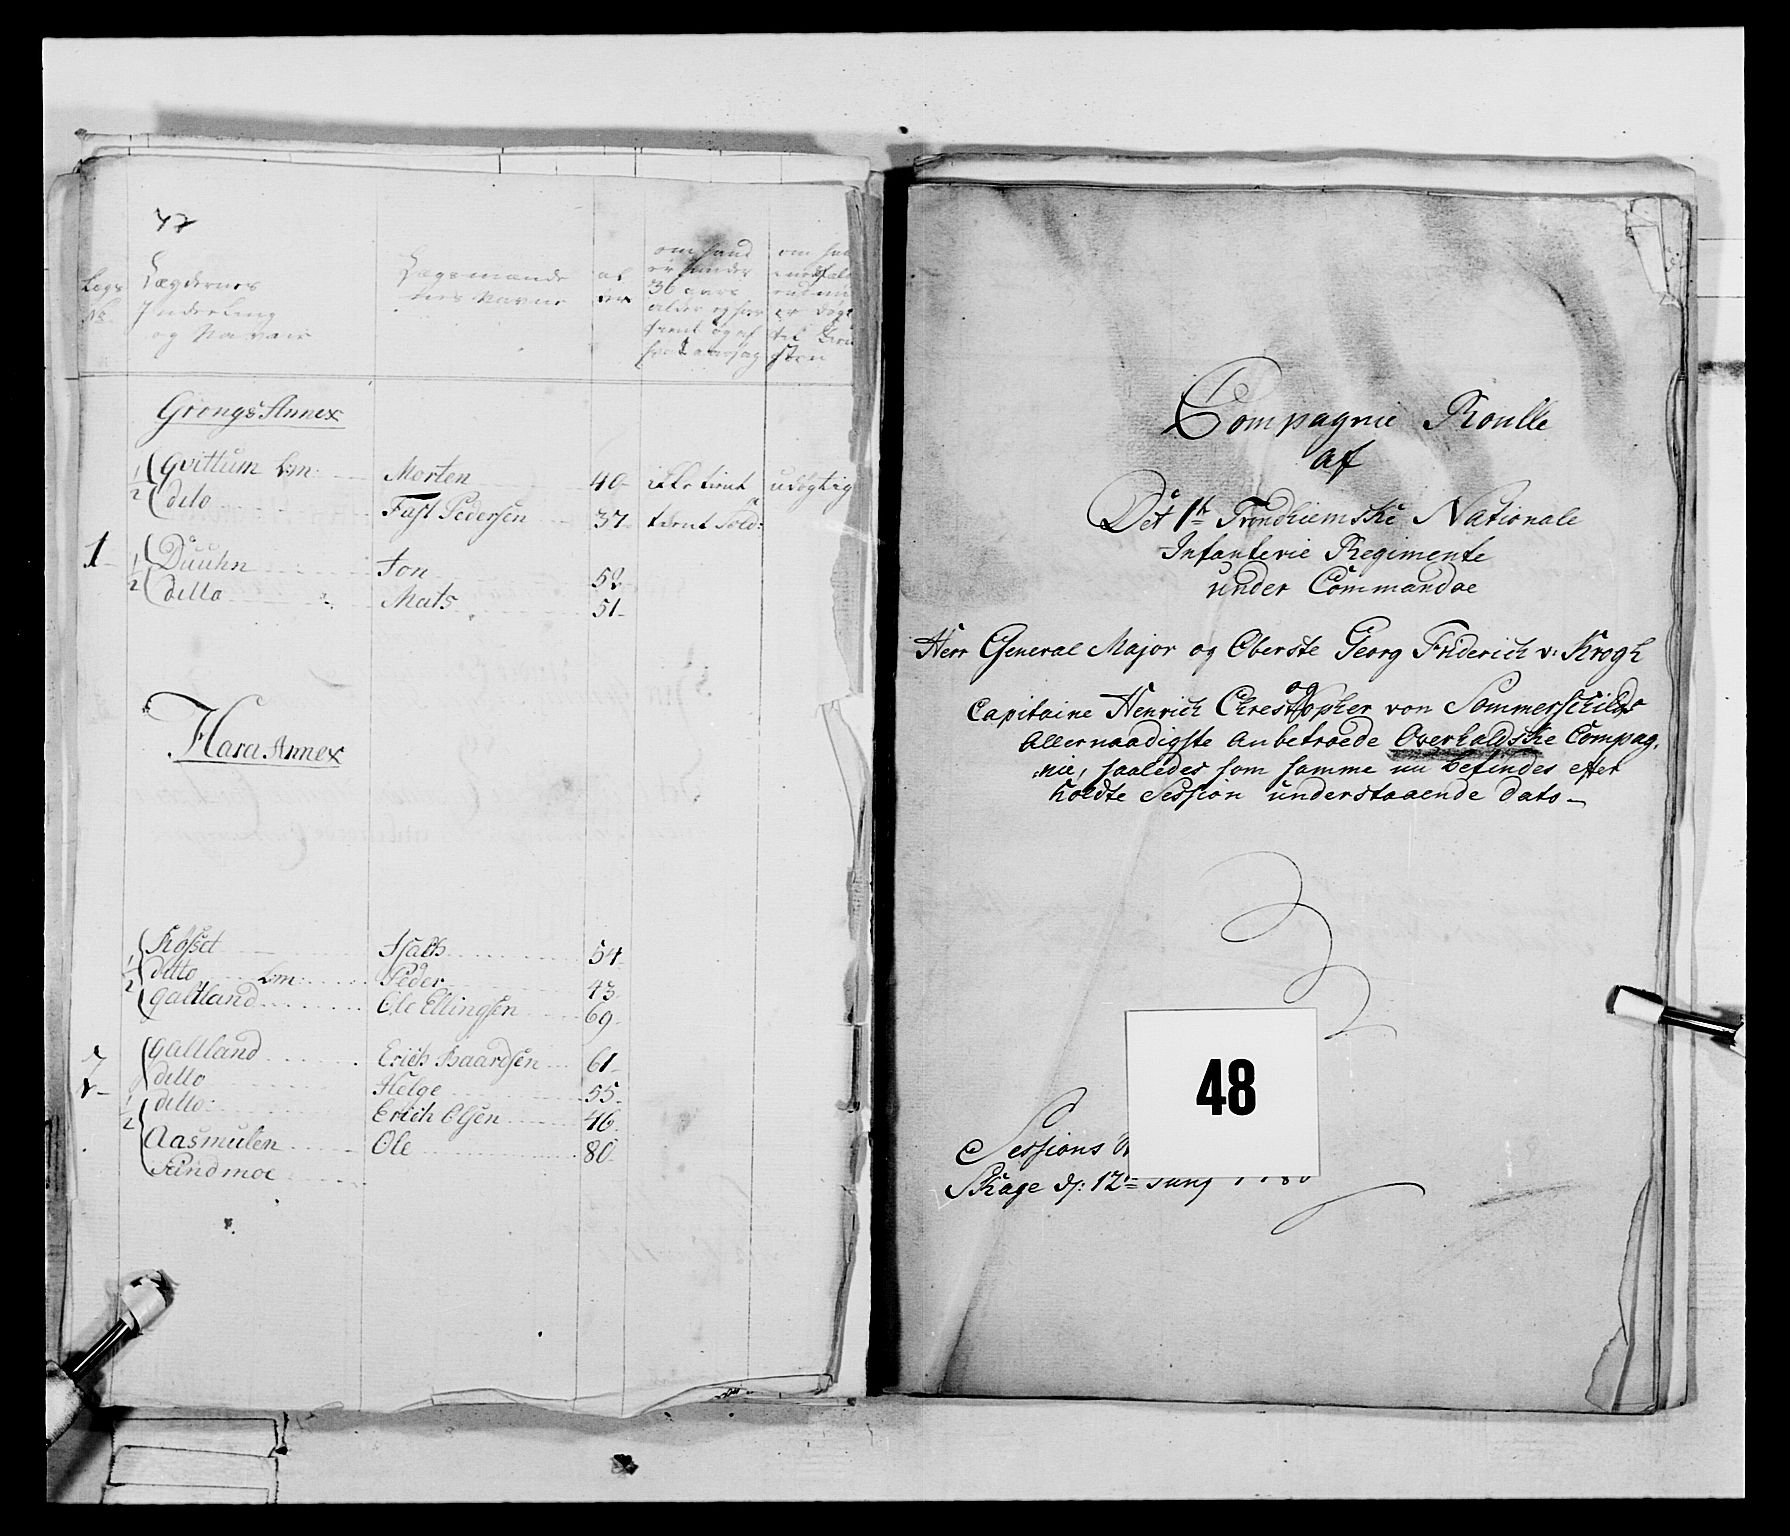 47
Legs No. Lægdernes Inderling og Navne
Lægsmænde nes Navne
al der
om hand er under 36 aars alder og har tient og af hvad aarsag
om
er dygt
Grongs Annex
1 Gvittum Lm: Morten 40 ikke tient udygtig
2 dito Fast Pedersen 37 tient Sold:
1 1 Duuhn Jon 52
2 ditto Mats 51
Hara Annex
1 Rosset Isach 54
2 ditto Lm: Peder 43
Galtland Ole Ellingsen 69
Galtland Erich Baardsen 61
ditto Helge 55
1 ditto: Erich Olsen 46
2 Aasmulen Ole 80
Sandmoe
Compagnie Roulle
af
Det 1te Trondhiemske Nationale
Infanterie Regimente
under Commandoe
Herr General Major og Oberste Georg Friderich v: Krogh
og
Capitaine Henrich Chrestopher von Sommerschilds
Allernaadigste Anbetroede Overhaldske Compag,
nie, saaledes som samme nu befindes efter
holdte Session understaaende dato
48
Sessions
Skage d: 12te Junj